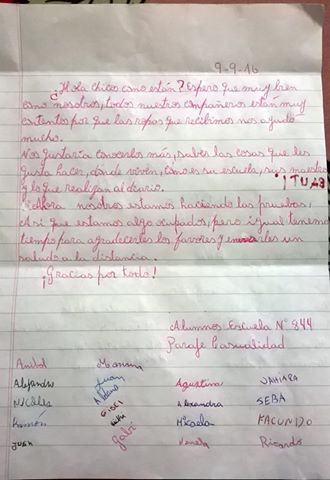 9-9-16
¿Hola chicos como están? Espero que muy bien
como nosotros, todos nuestros compañeros están muy
contentos por que las ropas que recibimos nos ayudó
mucho.
Nos gustaría conocerlos más, saber las cosas que les
gusta hacer, donde viven, como es su escuela, sus maestros
y lo que realizan al diario.
Ahora nosotros estamos haciendo las pruebas,
Asi que estamos algo ocupados, pero igual tenemo
tiempo para agradecerles los favores y enviarles un
saludo a la distancia.
¡Gracias por todo!
Alumnos Escuela N° 844
Paraje Casualidad
Anibal
Alejandro Juan Agustina JAHIARA
NICOLAS GISEL Alexandra SEBA
Ramón Micaela FACUNDO
JUAN Gabi Ricardo